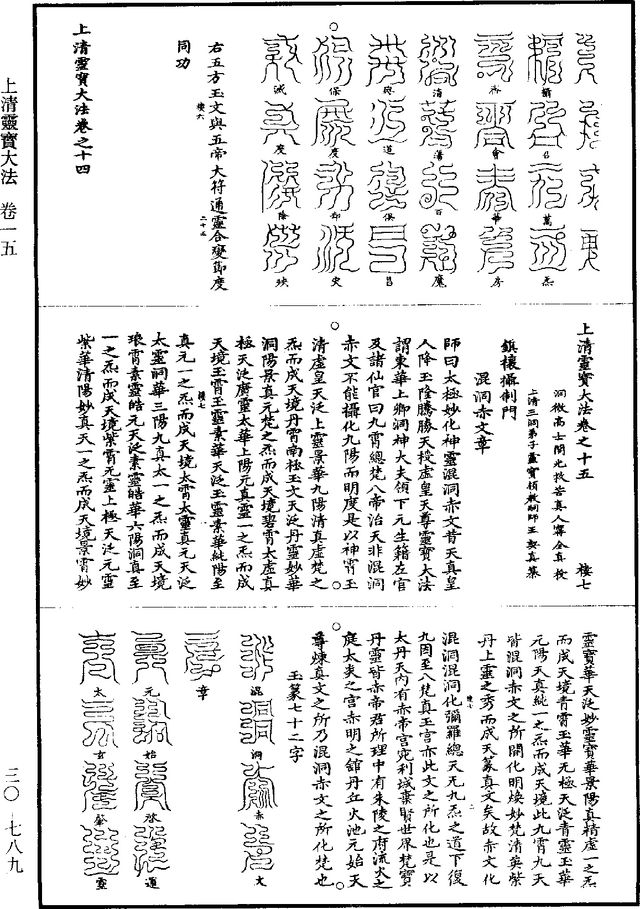 上清靈寶大法 卷一五
三〇—七八九
攝召萬炁
齋會華房
清蕩百魔
府道俱昌
保度劫史
滅度除殃
右五方玉文與五帝大符通靈合變節度
同功
樓六
二十五
上清靈寶大法卷之十四
上清靈寶大法卷之十五
樓七
洞微高士開光救苦真人甯全真授
上清三洞弟子靈寶領教嗣師王契真纂
鎮禳攝制門
混洞赤文章
師曰太極妙化神靈混洞赤文昔天真皇
人降玉隆騰勝天授虛皇天尊靈寶大法
謂東華上卿洞神大夫領下元生籍左官
及諸仙官曰九霄總梵八帝治天非混洞
赤文不能攝化九陽而明度是以神霄玉
清虛皇天泛上靈景華九陽清真虛梵之
炁而成天境丹霄南極玉文天泛丹靈妙華
洞陽景真元梵之炁而成天境碧霄太虛真
極天泛廣靈太華上陽元真靈一之炁而成
天境玉霄玉靈素華天泛玉靈素華純陽至
真元一之炁而成天境太霄太靈真元天泛
樓七
太靈洞華三陽九真太一之炁而成天境
琅霄素靈皓元天泛素靈皓華六陽洞真至
一之炁而成天境紫霄元靈上極天泛元靈
紫華清陽妙真天一之炁而成天境景霄妙
靈寶華天泛妙靈寶華景陽真精虛一之炁
而成天境青霄玉華无極天泛青靈玉華
元陽天真純一之炁而成天境此九霄九天
皆混洞赤文之所開化明煥妙梵清英紫
丹上靈之秀而成天篆真文矣故赤文化
混洞混洞化彌羅總天元九炁之道下復
九因至八梵真王宮亦此文之所化也是以
太丹天內有赤帝宮宛利城棄賢世界梵寶
丹靈皆赤帝君所理中有朱陵之府流火之
庭太炎之宮赤明之舘丹丘火池元始天
尊煉真文之所乃混洞赤文之所化梵也
玉篆七十二字
混洞赤文
章
元始啓運
太玄
靈